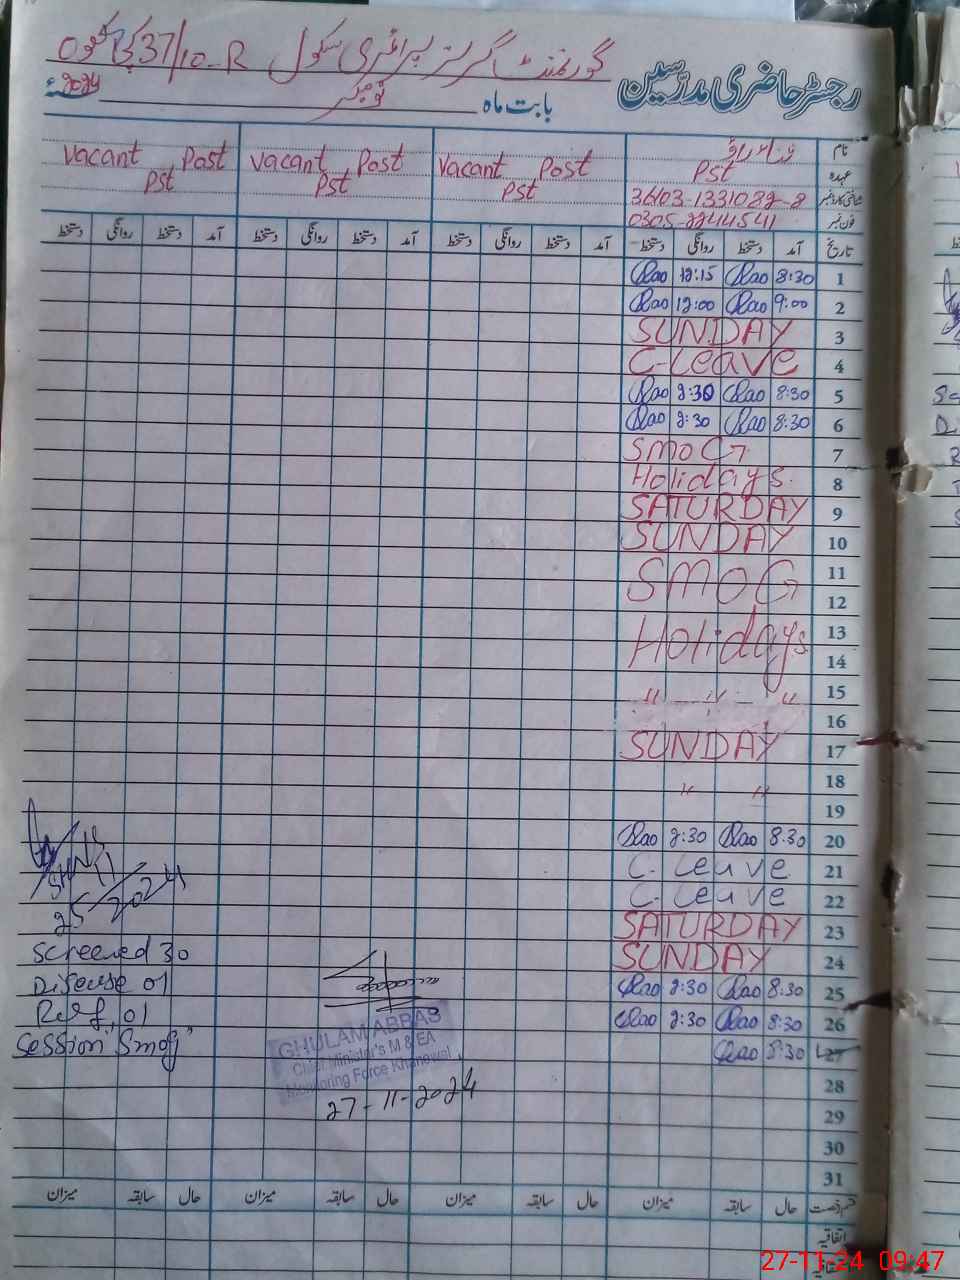 گورنمنٹ گرلز پرائمری سکول 37/10-R
رجسٹر حاضری مدرسین
بابت ماہ نومبر 2024ء
نام
Vacant Post Vacant Post Vacant Post
عہدہ PST PST PST PST
شناختی کارڈ نمبر 36103-1331082-8
فون نمبر 0305-2244541
تاریخ آمد دستخط روانگی دستخط آمد دستخط روانگی دستخط آمد دستخط روانگی دستخط آمد دستخط روانگی دستخط
1 8:30 Rao 12:15 Rao
2 9:00 Rao 12:00 Rao
3 SUNDAY
4 C-Leave
5 8:30 Rao 2:30 Rao
6 8:30 Rao 2:30 Rao
7 SMOG
8 Holidays
9 SATURDAY
10 SUNDAY
11 SMOG
12
13 Holidays
14
15 " " "
16
17 SUNDAY
18 " "
19
20 8:30 Rao 2:30 Rao
21 C. Leave
22 C. Leave
23 SATURDAY
24 SUNDAY
25 8:30 Rao 2:30 Rao
26 8:30 Rao 2:30 Rao
27 8:30 Rao
28
29
30
31
25/11/2024
Screened 30
Disease 01
Ref 01
Session "Smog"
GHULAM ABBAS
Chief Minister's M & EA
Monitoring Force Khanewal
27-11-2024
قسم رخصت حال سابقہ میزان حال سابقہ میزان حال سابقہ میزان حال سابقہ میزان
اتفاقیہ
27-11-24 09:47